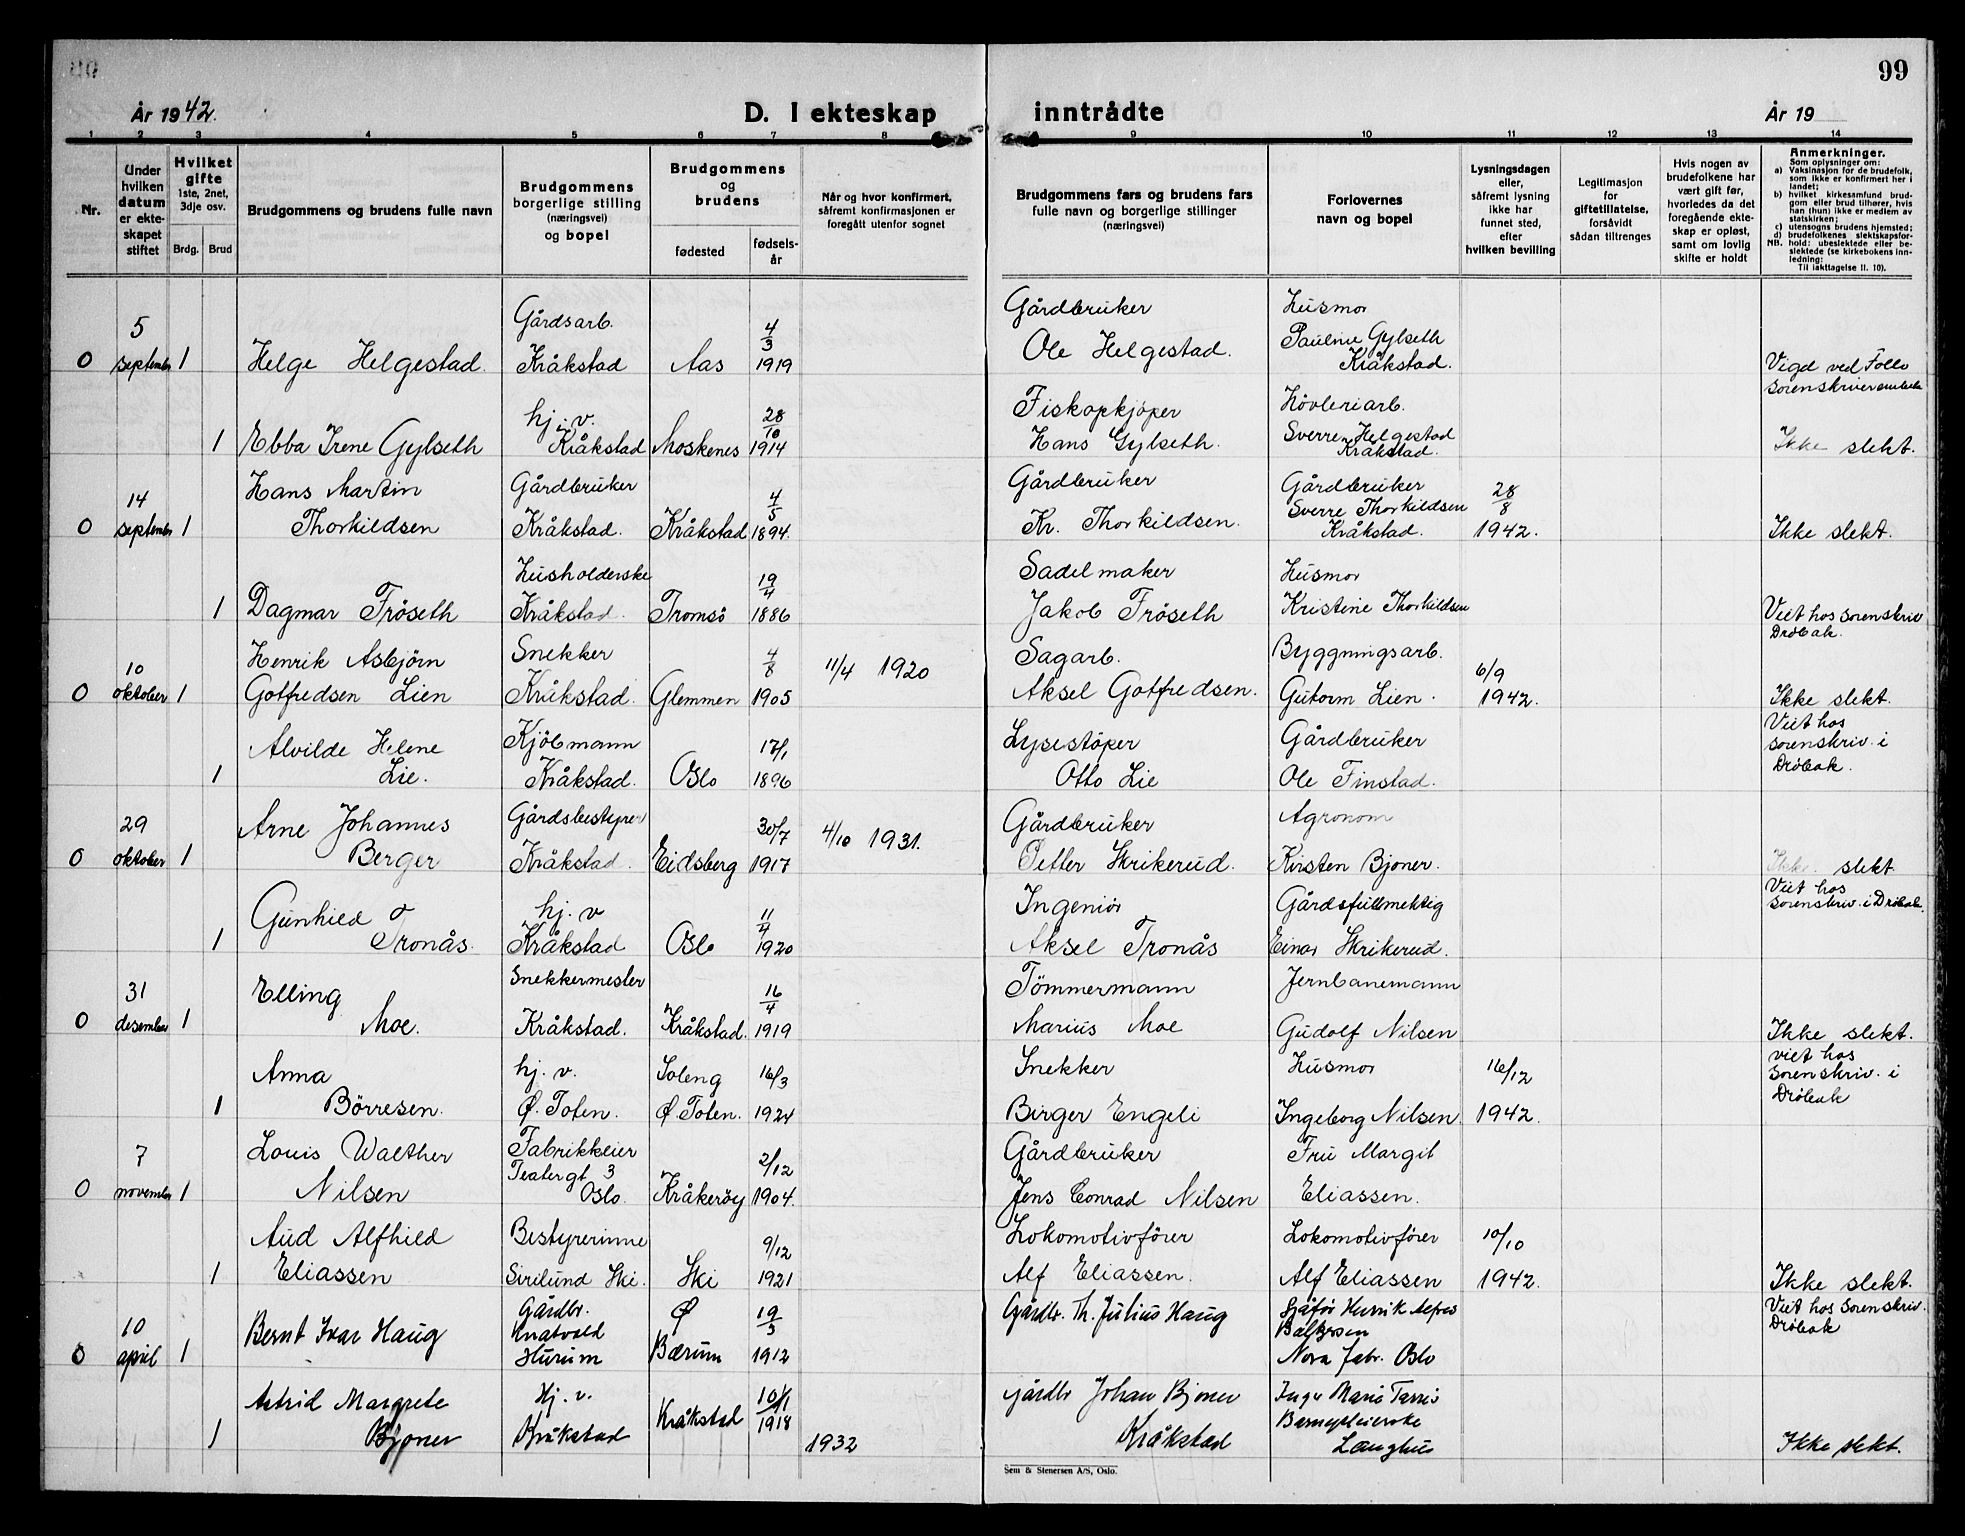 99
År 1942.
D. I ekteskap inntrådte
År 19
1 2 3 4 5 6 7 8 9 10 11 12 13 14
Nr.
Under hvilken datum er ekteskapet stiftet
Hvilket gifte 1ste, 2net, 3dje osv.
Brdg. Brud
Brudgommens og brudens fulle navn
Brudgommens borgerlige stilling (næringsvei) og bopel
Brudgommens og brudens
fødested
fødselsår
Når og hvor konfirmert, såfremt konfirmasjonen er foregått utenfor sognet
Brudgommens fars og brudens fars fulle navn og borgerlige stillinger (næringsvei)
Forlovernes navn og bopel
Lysningsdagen eller, såfremt lysning ikke har funnet sted, efter hvilken bevilling
Legitimasjon for giftetillatelse, forsåvidt sådan tiltrenges
Hvis nogen av brudefolkene har vært gift før, hvorledes da det foregående ekteskap er opløst, samt om lovlig skifte er holdt
Anmerkninger.
Som oplysninger om:
a) Vaksinasjon for de brudefolk, som ikke er konfirmert her i landet;
b) hvilket kirkesamfund brudgom eller brud tilhører, hvis han (hun) ikke er medlem av statskirken;
c) utensogns brudens hjemsted;
d) brudefolkenes slektskapsforhold: ubeslektede eller beslektede (se kirkebokens innledning:
NB.
Til iakttagelse II. 10).
0 5 september 1 Helge Helgestad. Gårdsarb. Kråkstad Aas 4/3 1919 Gårdbruker Ole Helgestad. Husmor Pauline Gylseth Kråkstad. Vigd ved Follo sorenskriverembede
1 Ebba Irene Gylseth hj. v. Kråkstad Moskenes 28/10 1914 Fiskopkjøper Hans Gylseth. Hövleriarb. Sverre Helgestad Kråkstad. Ikke slekt.
0 14 september 1 Hans Martin Thorkildsen Gårdbruker Kråkstad. Kråkstad 4/5 1894. Gårdbruker Kr. Thorkildsen. Gårdbruker Sverre Thorkildsen Kråkstad. 28/8 1942. Ikke slekt.
1 Dagmar Fröseth Husholderske Kråkstad. Tromsö 19/4 1886 Sadelmaker Jakob Fröseth Husmor Kristine Thorkildsen Viet hos Sorenskriv Dröbak.
0 10 oktober 1 Henrik Asbjörn Gotfredsen Lien Snekker Kråkstad. Glemmen 4/8 1905 11/4 1920 Sagarb. Aksel Gotfredsen. Byggningsarb. Gutorm Lien. 6/9 1942. Ikke slekt.
1 Alvilde Helene Lie. Kjöbmann Kråkstad. Oslo 17/1 1896 Lysestöper Otto Lie Gårdbruker Ole Finstad. Viet hos sorenskriv. i Dröbak.
0 29 oktober 1 Arne Johannes Berger Gårdsbestyrer Kråkstad. Eidsberg 30/7 1917 4/10 1931. Gårdbruker Petter Skrikerud. Agronom Kristen Bjoner. Ikke slekt
1 Gunhild Tronås. hj. v Kråkstad Oslo 11/4 1920 Ingeniör Aksel Tronås Gårdsfullmektig Einar Skrikerud. Viet hos Sorenskriv. i Dröbak.
0 31 desember 1 Elling Moe. Snekkermester Kråkstad. Kråkstad. 16/4 1919 Tömmermann Marius Moe Jernbanemann Gudolf Nilsen Ikke slekt.
1 Anna Börresen. hj. v. Ø. Toten. Soleng Ø. Toten. 16/3 1924 Snekker Birger Engeli Husmor Ingeborg Nilsen. 16/12 1942. viet hos Sorenskriv. i Dröbak
0 7 november 1 Louis Walther Nilsen Fabrikkeier Teatergt 3 Oslo. Kråkeröy 2/12 1904. Gårdbruker Jens Conrad Nilsen Fru Margit Eliassen.
1 Aud Alfhild Eliassen Bestyrerinne Sirilund Ski. Ski 9/12 1921 Lokomotivförer Alf Eliassen. Lokomotivförer Alf Eliassen 10/10 1942. Ikke slekt.
0 10 april 1 Bernt Ivar Haug Gårdbr. Knatvold Hurum Ø Bærum 19/3 1912 Gårdbr. Th. Julius Haug Sjåfør Henrik Nora fabr. Oslo Viet hos Sorenskriv. Dröbak
1 Astrid Margrete Bjoner Hj. v. Kråkstad Kråkstad 10/1 1918 1932 gårdbr Johan Bjoner Kråkstad Inger Marie Langhus Ikke slekt.
Sem & Stenersen A/S, Oslo.